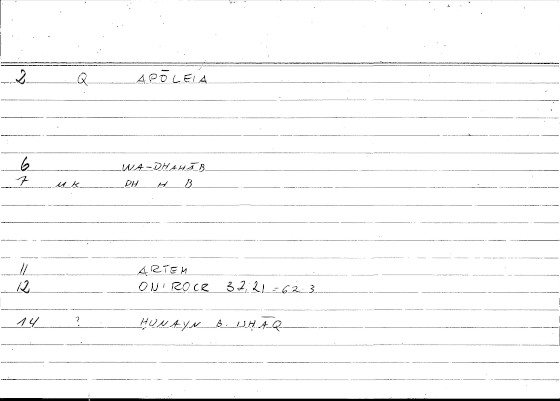 2 Q APŌLEIA
6 WA-DHAHĀB
7 MK DH H B
11 ARTEM
12 ONIROCR 32,21 = 62 3
14 ? HUNAYN B. ISHĀQ